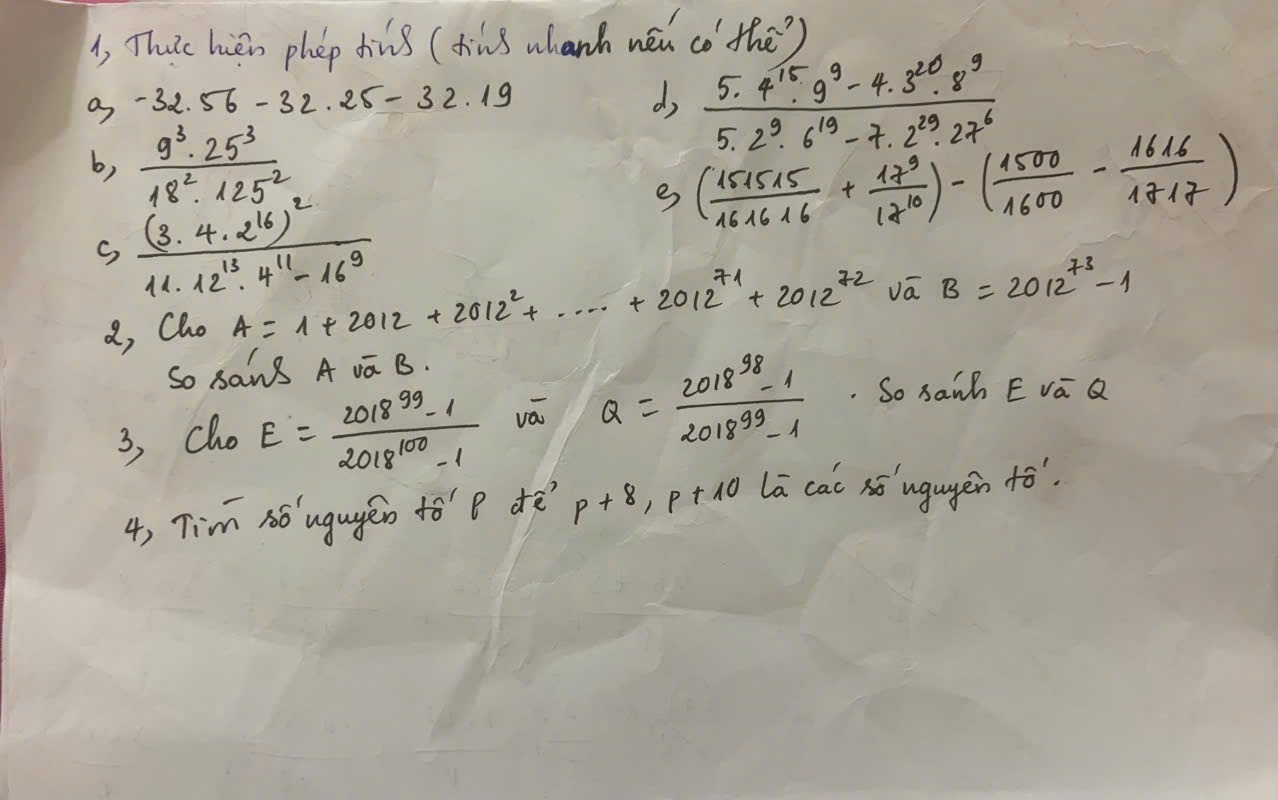 1, Thực hiện phép tính (tính nhanh nếu có thể)
a, -32.56 - 32.25 - 32.19
b, \frac{9^3 . 25^3}{18^2 . 125^2}
c, \frac{(3.4.2^{16})^2}{11.12^{13}.4^{11} - 16^9}
d, \frac{5.4^{15}.9^9 - 4.3^{20}.8^9}{5.2^9.6^{19} - 7.2^{29}.27^6}
e, (\frac{151515}{161616} + \frac{17^9}{17^{10}}) - (\frac{1500}{1600} - \frac{1616}{1717})
2, Cho A = 1 + 2012 + 2012^2 + ..... + 2012^{71} + 2012^{72} và B = 2012^{73} - 1
So sánh A và B.
3, Cho E = \frac{2018^{99} - 1}{2018^{100} - 1} và Q = \frac{2018^{98} - 1}{2018^{99} - 1} . So sánh E và Q
4, Tìm số nguyên tố p để p + 8, p + 10 là các số nguyên tố.